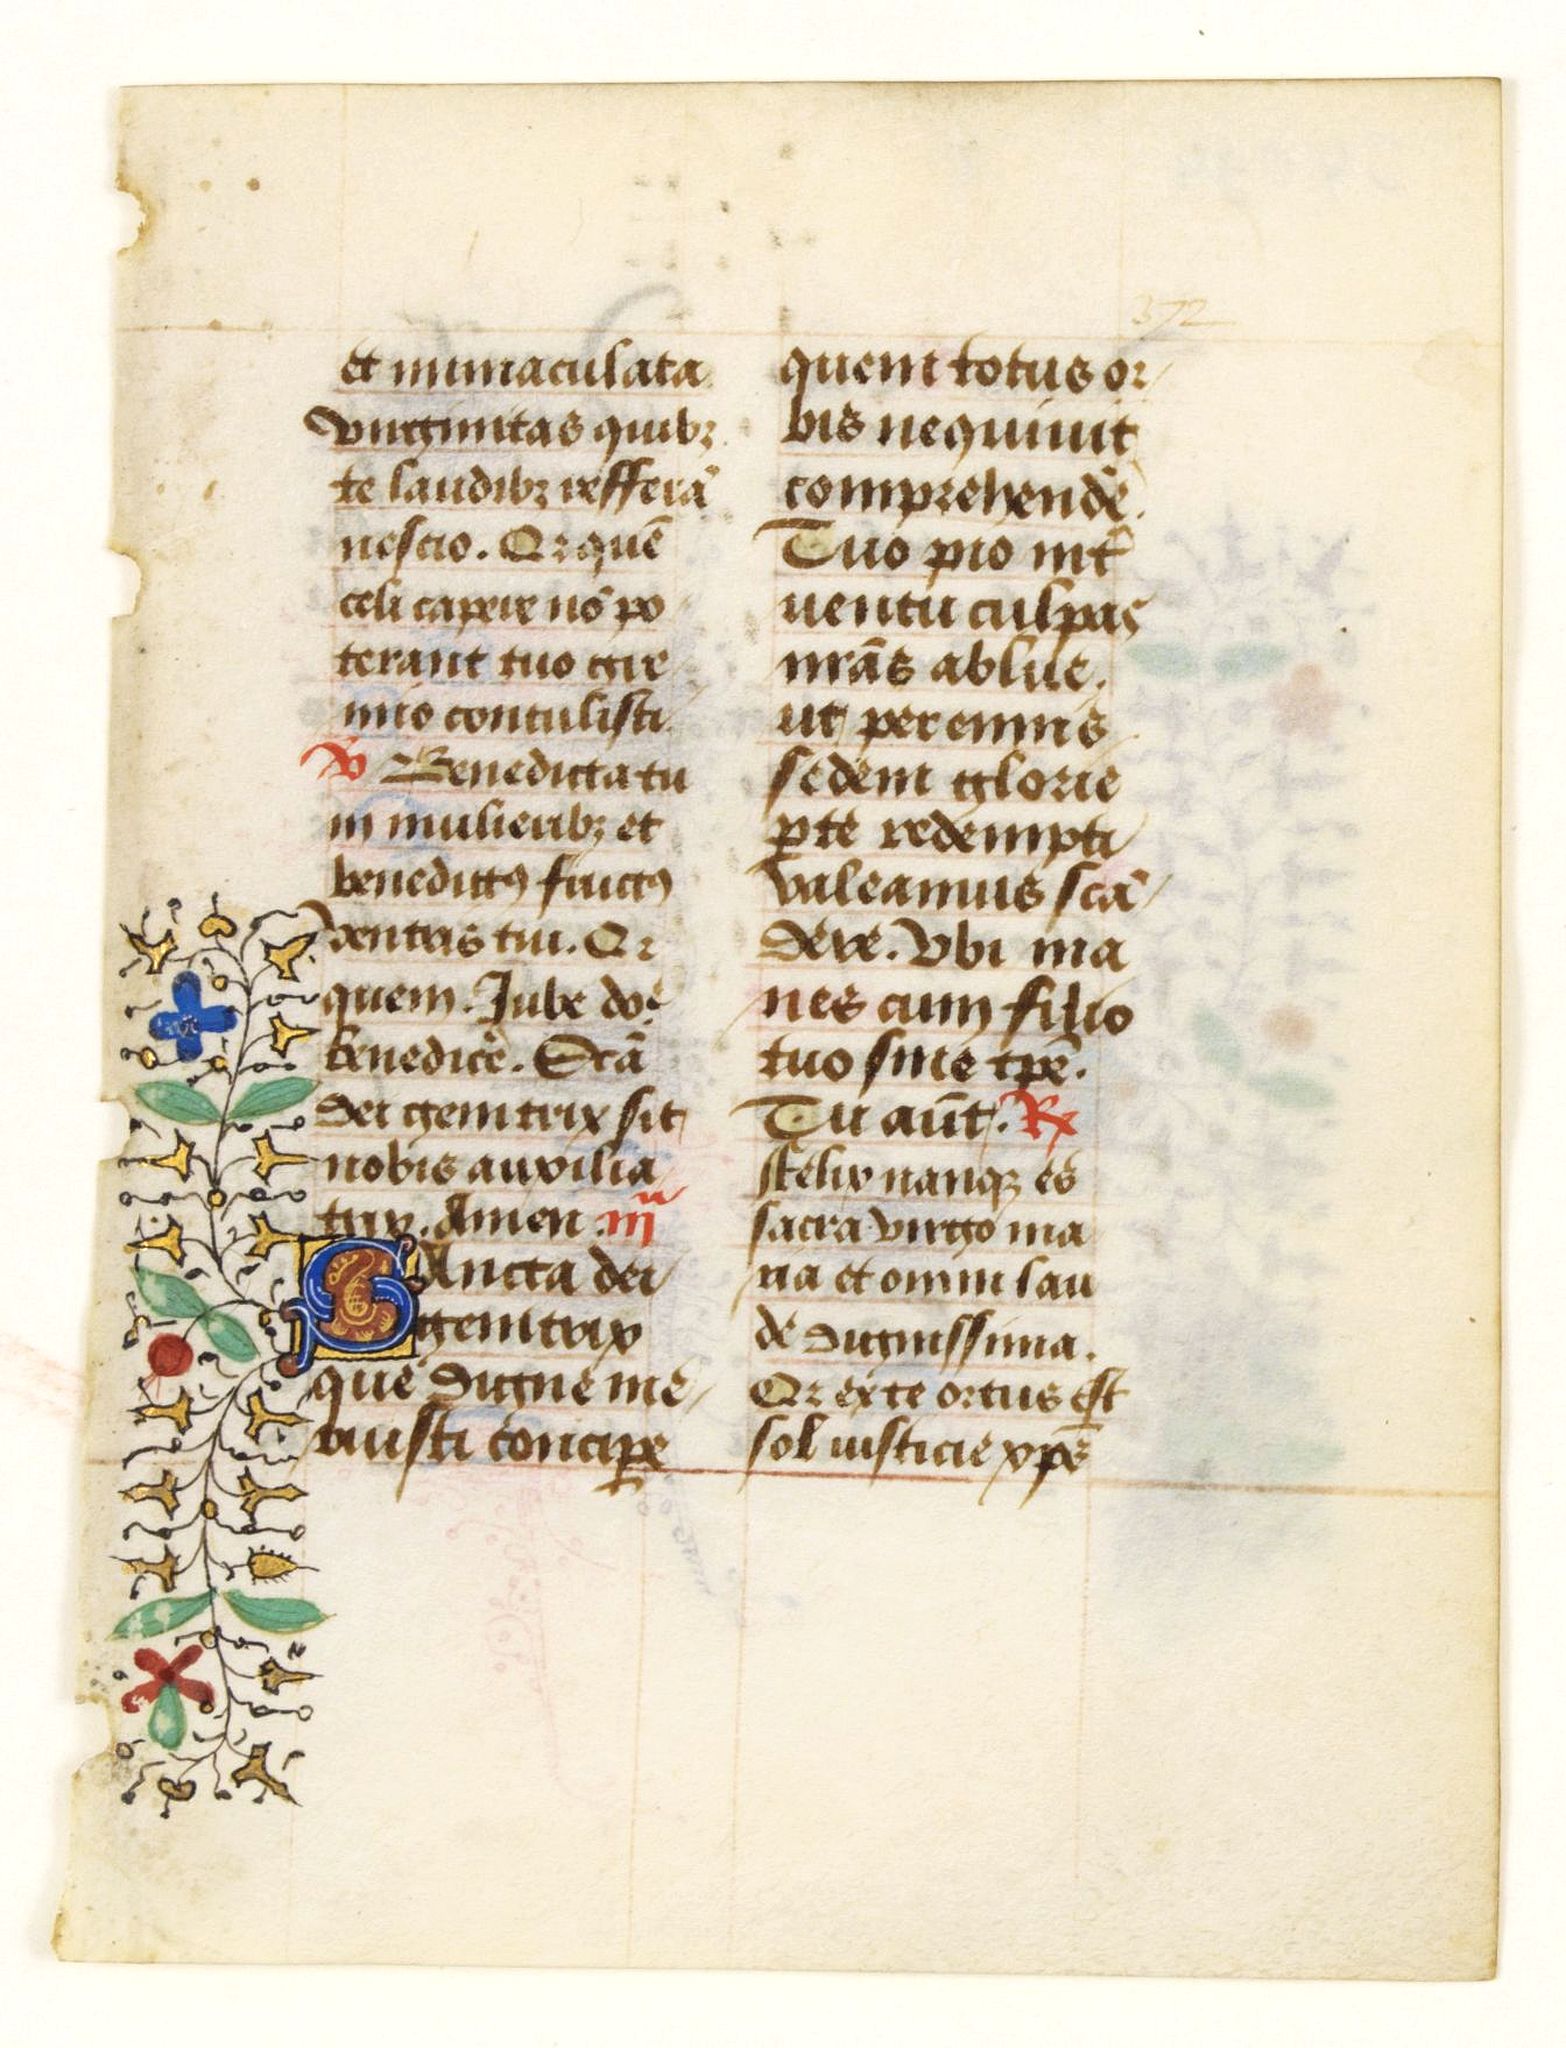 et inmaculata
virginitas quibꝫ
te laudibꝫ refferā
nescio. Qr quē
celi capere nō po
terant tuo gre
mio contulisti
℣ Benedicta tu
in mulieribꝫ et
benedictꝰ fructꝰ
ventris tui. Qr
quem. Jube dōe
benedicē. Scā
dei genitrix sit
nobis auxilia
trix. Amen .iiiᵃ
SAncta dei
genitrix
que digne me
ruisti concipꝭe
372
quem totus or
bis nequiuit
comprehendē.
Tuo pio int͛
uentu culpas
nrās ablue.
ut perennis
sedem glorie
ꝑ te redempti
valeamus scā
dere. Vbi ma
nes cum filio
tuo sine tꝑe.
Tu aūt. ℞
Felix nanqꝫ es
sacra virgo ma
ria et omni lau
de dignissima.
Qr ex te ortus est
sol iusticie xp̄s